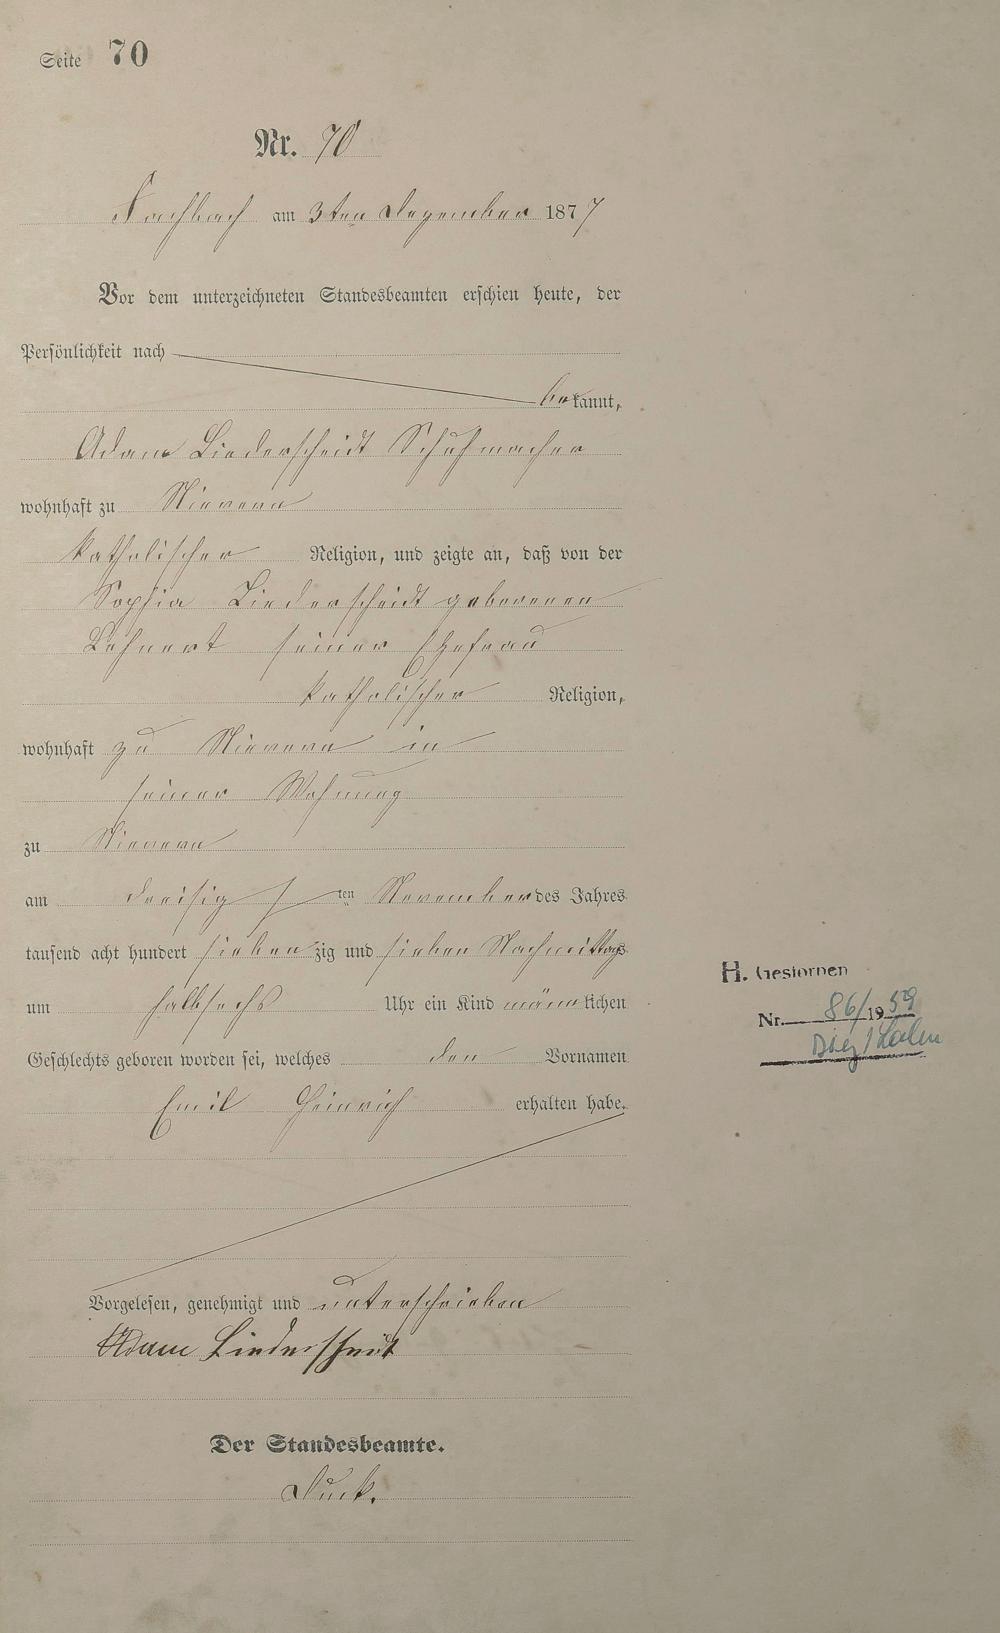 Seite 70
Nr. 70
Fachbach am 3ten Dezember 1877
Vor dem unterzeichneten Standesbeamten erschien heute, der
Persönlichkeit nach
bekannt,
Adam Liederscheidt Schuhmacher
wohnhaft zu Nievern
katholischer Religion, und zeigte an, daß von der
Sophia Liederscheidt geborenen
Lehnert seiner Ehefrau
katholischer Religion,
wohnhaft zu Nievern in
seiner Wohnung
zu Nievern
am dreisig ten November des Jahres
tausend acht hundert siebenzig und sieben Nachmittags
um halbsechs Uhr ein Kind männlichen
Geschlechts geboren worden sei, welches den Vornamen
Emil Heinrich erhalten habe.
Vorgelesen, genehmigt und unterschrieben
Adam Liederscheidt
Der Standesbeamte.
Duck.
H. Gestorben
Nr. 86/1959
Diez/Lahn